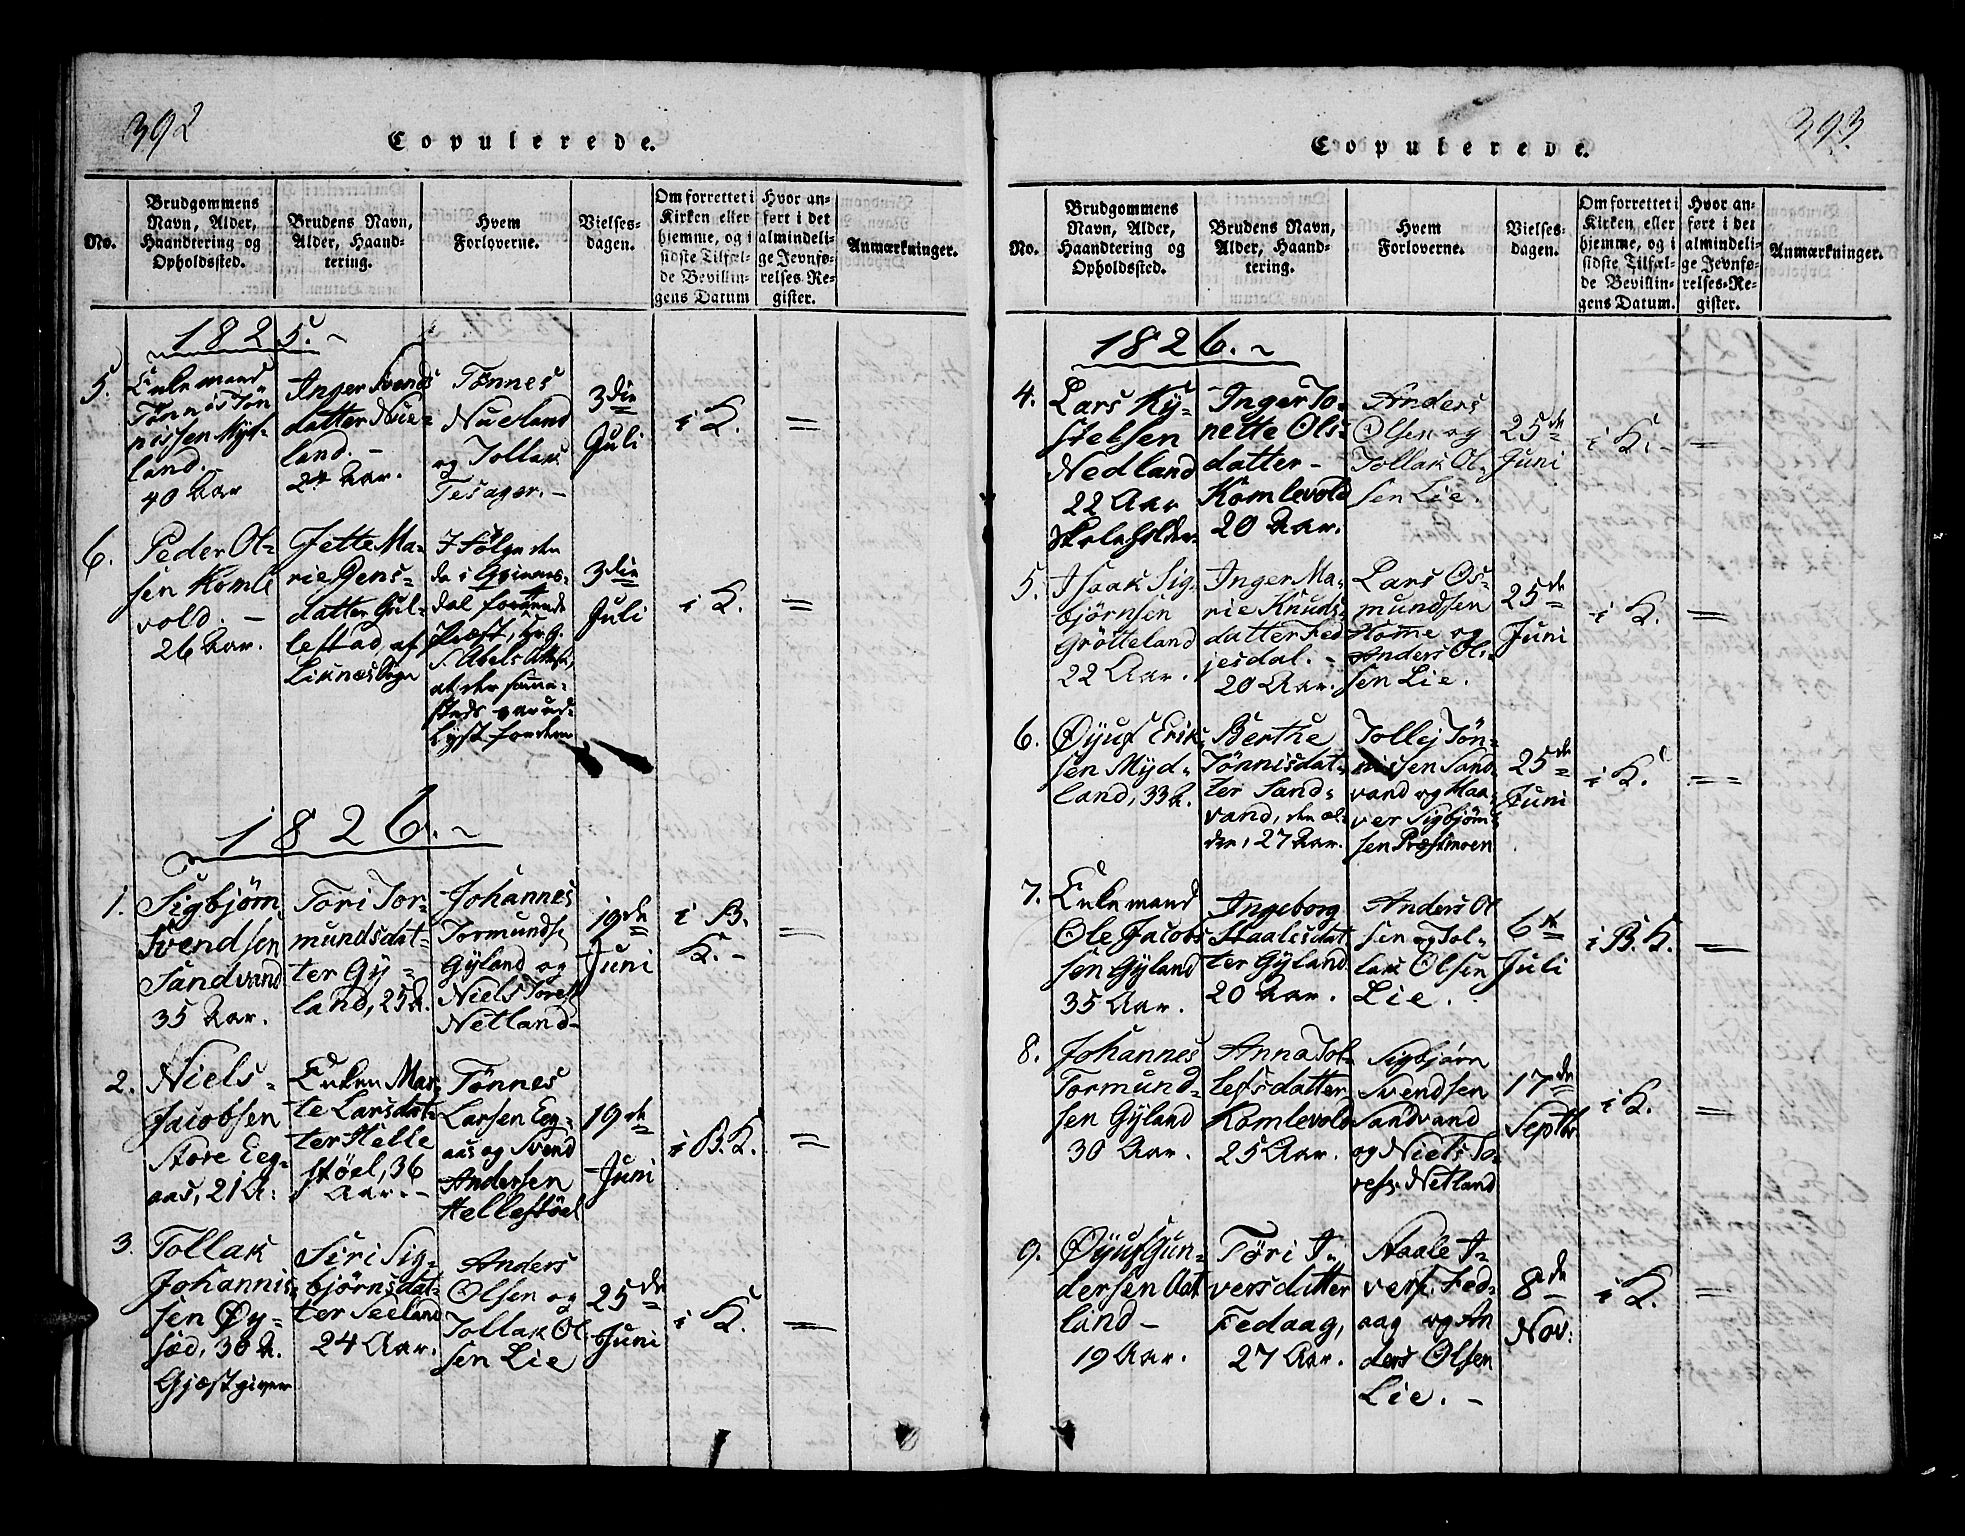 392
Copulerede.
No.
Brudgommens
Navn, Alder,
Haandtering og
Opholdssted.
Brudens Navn,
Alder, Haand-
tering.
Hvem
Forloverne.
Vielses-
dagen.
Om forrettet i
Kirken eller
hjemme, og i
sidste Tilfæl-
de Bevillin-
gens Datum
Hvor an-
ført i det
almindeli-
ge Jevnfø-
relses-Re-
gister.
Anmærkninger.
1825.
5.
Enkemand
Tønnis Tøn
nissen Myd-
land.
40 Aar
Inger Svends
datter Nue-
land.
24 Aar.
Tønnes
Nueland
og Tollak
Tesager.
3die
Juli
i K.
=
6.
Peder Ol-
sen Komle
vold.
26 Aar.
Jette Ma-
rie Jens-
datter Gul-
lestad af
Liknes Sogn
I Følge den
da i Qvinnes-
dal
Præst, Hr. G.
S. Abels Attest,
at der samme-
steds var ud-
lyst for dem
3die
Juli
i K.
=
1826.
1.
Sigbjørn
Svendsen
Sandvand
35 Aar.
Tori Tor-
mundsdat-
ter Gy-
land, 25 A.
Johannes
Tormunds
Gyland og
Niels Tores
Netland
19de
Juni
i B.
K.
=
2.
Niels
Jacobsen
Store Eeg-
aas, 21 A.
Enken Mar-
te Larsdat-
ter Helle
støel, 36
Aar.
Tønnes
Larsen Eeg-
aas og Svend
Andersen
Hellestøel
19de
Juni
i B. K.
=
3.
Tollak
Johannis-
sen Øy-
sæd, 30 A.
Gjæstgiver
Siri Sig-
bjørnsdat-
ter Seeland
24 Aar.
Anders
Olsen og
Tollak Ol
sen Lie
25de
Juni
i K.
=
393.
Copulerede.
No.
Brudgommens
Navn, Alder,
Haandtering og
Opholdssted.
Brudens Navn,
Alder, Haand-
tering.
Hvem
Forloverne.
Vielses-
dagen.
Om forrettet i
Kirken, eller
hjemme, og i
sidste Tilfæl-
de Bevillin-
gens Datum.
Hvor an-
ført i det
almindeli-
ge Jevnfø-
relses-Re-
gister.
Anmærkninger.
1826.
4.
Lars Ky-
stelsen
Nedland
22 Aar
Skoleholder
Inger To-
nette Ols-
datter
Komlevold
20 Aar.
Anders
Olsen og
Tollak Ol-
sen Lie.
25de
Juni
i K.
=
5.
Isaak Sig-
bjørnsen
Grötteland
22 Aar.
Inger Ma-
rie Knuds-
datter Fed
jesdal.
20 Aar.
Lars Os-
mundsen
Homme og
Anders Ol-
sen Lie.
25de
Juni
i K.
=
6.
Øyuf Erik-
sen Myd-
land, 33 A.
Berthe
Tønnisdat-
ter Sand-
vand, den æl-
dre, 27 Aar.
Tollej Tøn-
nissen Sand-
vand og Haa-
ver Sigbjørn-
sen Præstmoen
25de
Juni
i K.
=
7.
Enkemand
Ole Jacob-
sen Gyland
35 Aar.
Ingeborg
Staalesdat-
ter Gyland
20 Aar.
Anders Ol
sen og Tol-
lak Olsen
Lie.
6te
Juli
i B. K.
=
8.
Johannes
Tormund-
sen Gyland
30 Aar.
Anna Tol-
lefsdatter
Komlevold
25 Aar.
Sigbjørn
Svendsen
Sandvand
og Niels To-
res. Netland
17de
Septbr.
i K.
=
9.
Øyuf Gun-
dersen Aat
land
19 Aar.
Töri I-
versdatter
Fedaag,
27 Aar.
Staale I-
vers. Fed-
aag og An
ders Olsen
Lie.
8de
Nov.
i K.
=